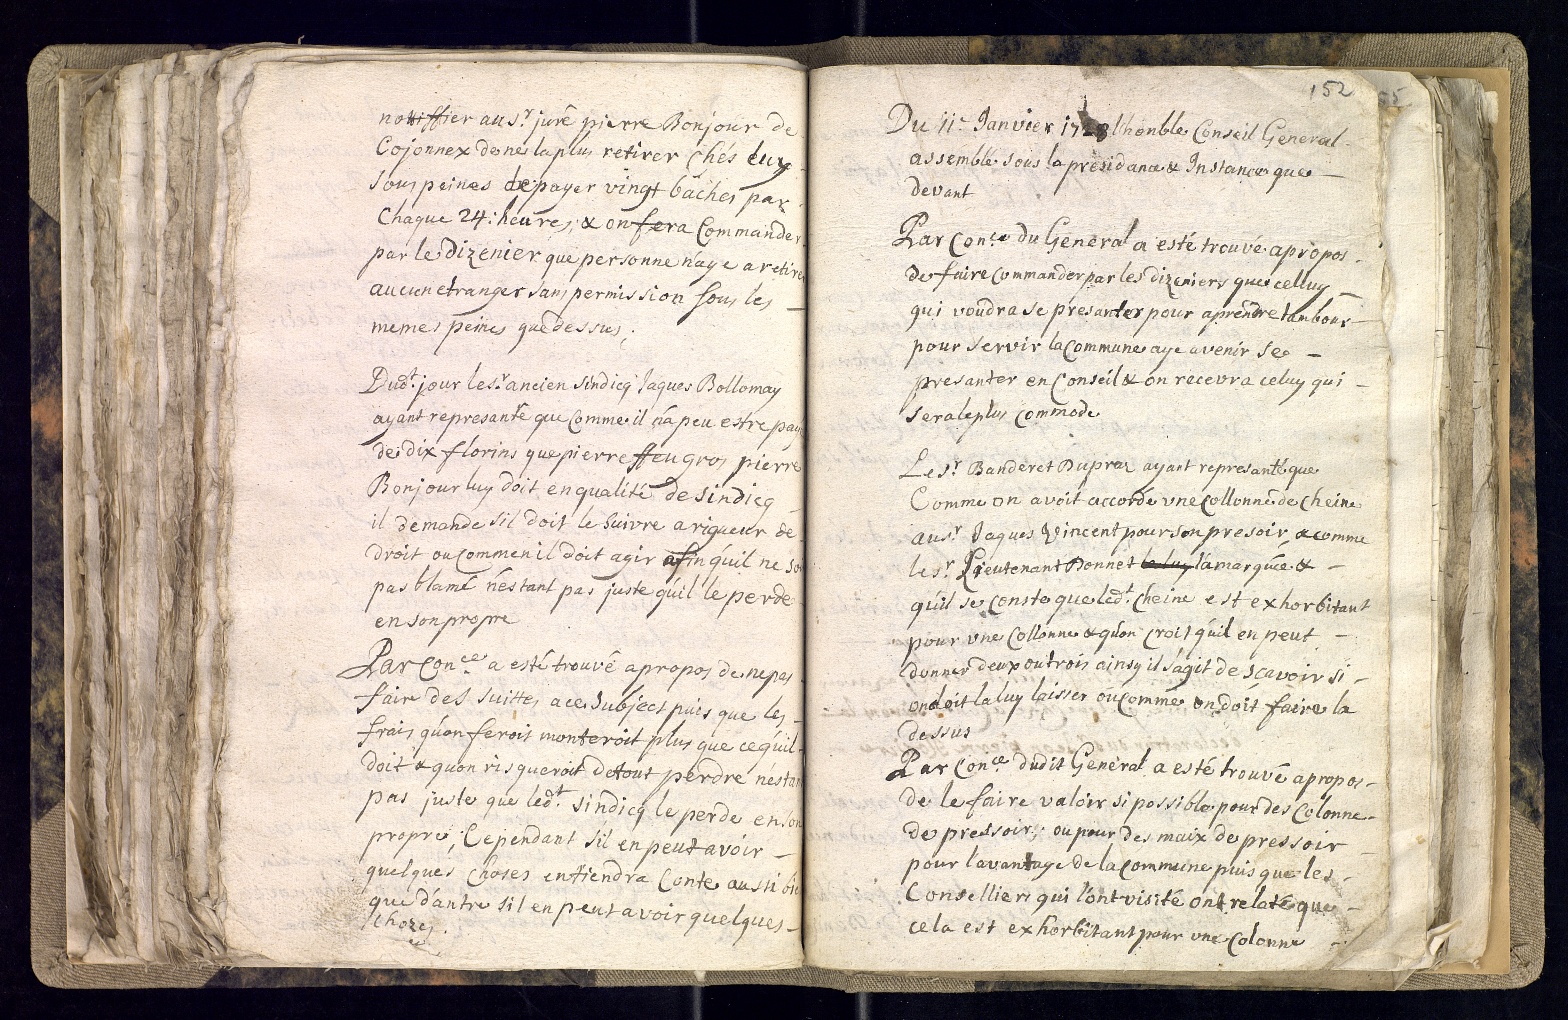 notiffier au s.r juré pierre Bonjour de
Cojonnex de ne la plus retirer Chés luy
sous peines de payer vingt bâches par
Chaque 24: heures, & on fera Commander
par le Dizenier que personne n'aye a retirer
aucun etranger sans permission sous les
memes peines que dessus,
Dud.t jour le s.r ancien sindicq Jaques Bollomay
ayant represanté que Comme il n'a peu estre payé
de dix florins que pierre ffeu gros pierre
Bonjour luy doit en qualité de sindicq
il demande s'il doit le suivre a rigueur de
droit ou Commen il doit agir afin qu'il ne soi
pas blamé n'estant pas juste qu'il le perde
en son propre
Par Con.ce a esté trouvé apropos de ne pas
fair des suittes a ce subject puis que les
frais qu'on ferois monteroit plus que ce qu'il
doit & qu'on risqueroit de tout perdre n'estan
pas juste que led.t sindicq le perde en son
propre; Cependant s'il en peut avoir
quelques choses en tiendra Conte aussi bie
que d'antre s'il en peut avoir quelques
Chozes.
152
55
Du 11.e Janvier 1728 l'honble Conseil General
assemblé sous la presidance & Instance que
devant
Par Con.ce du General a esté trouvé apropos
de faire Commander par les dizeniers que celluy
qui voudra se presanter pour aprendre tambour
pour servir la Commune aye a venir se
presanter en Conseil & on recevra celuy qui
sera le plus commode
Le s.r Banderet Dupraz ayant represanté que
Comme on avoit accordé une Collonne de cheine
au s.r Jaques Vincent pour son presoir & comme
le s.r Lieutenant Bonnet le luy l'a marquée &
qu'il se conste que led.t cheine est exhorbitant
pour une Collonne & qu'on croit qu'il en peut
donner deux ou trois ainsy il s'agit de scavoir si
on doit la luy laisser ou Comme on doit faire la
dessus
Par Con.ce dudit General a esté trouvé apropos
de le faire valoir si possible pour des Colonne
de pressoir; ou pour des maix de pressoir
pour l'avantage de la Commune puis que les
Conselliers qui l'ont visité ont relaté que
cela est exhorbitant pour une Colonne